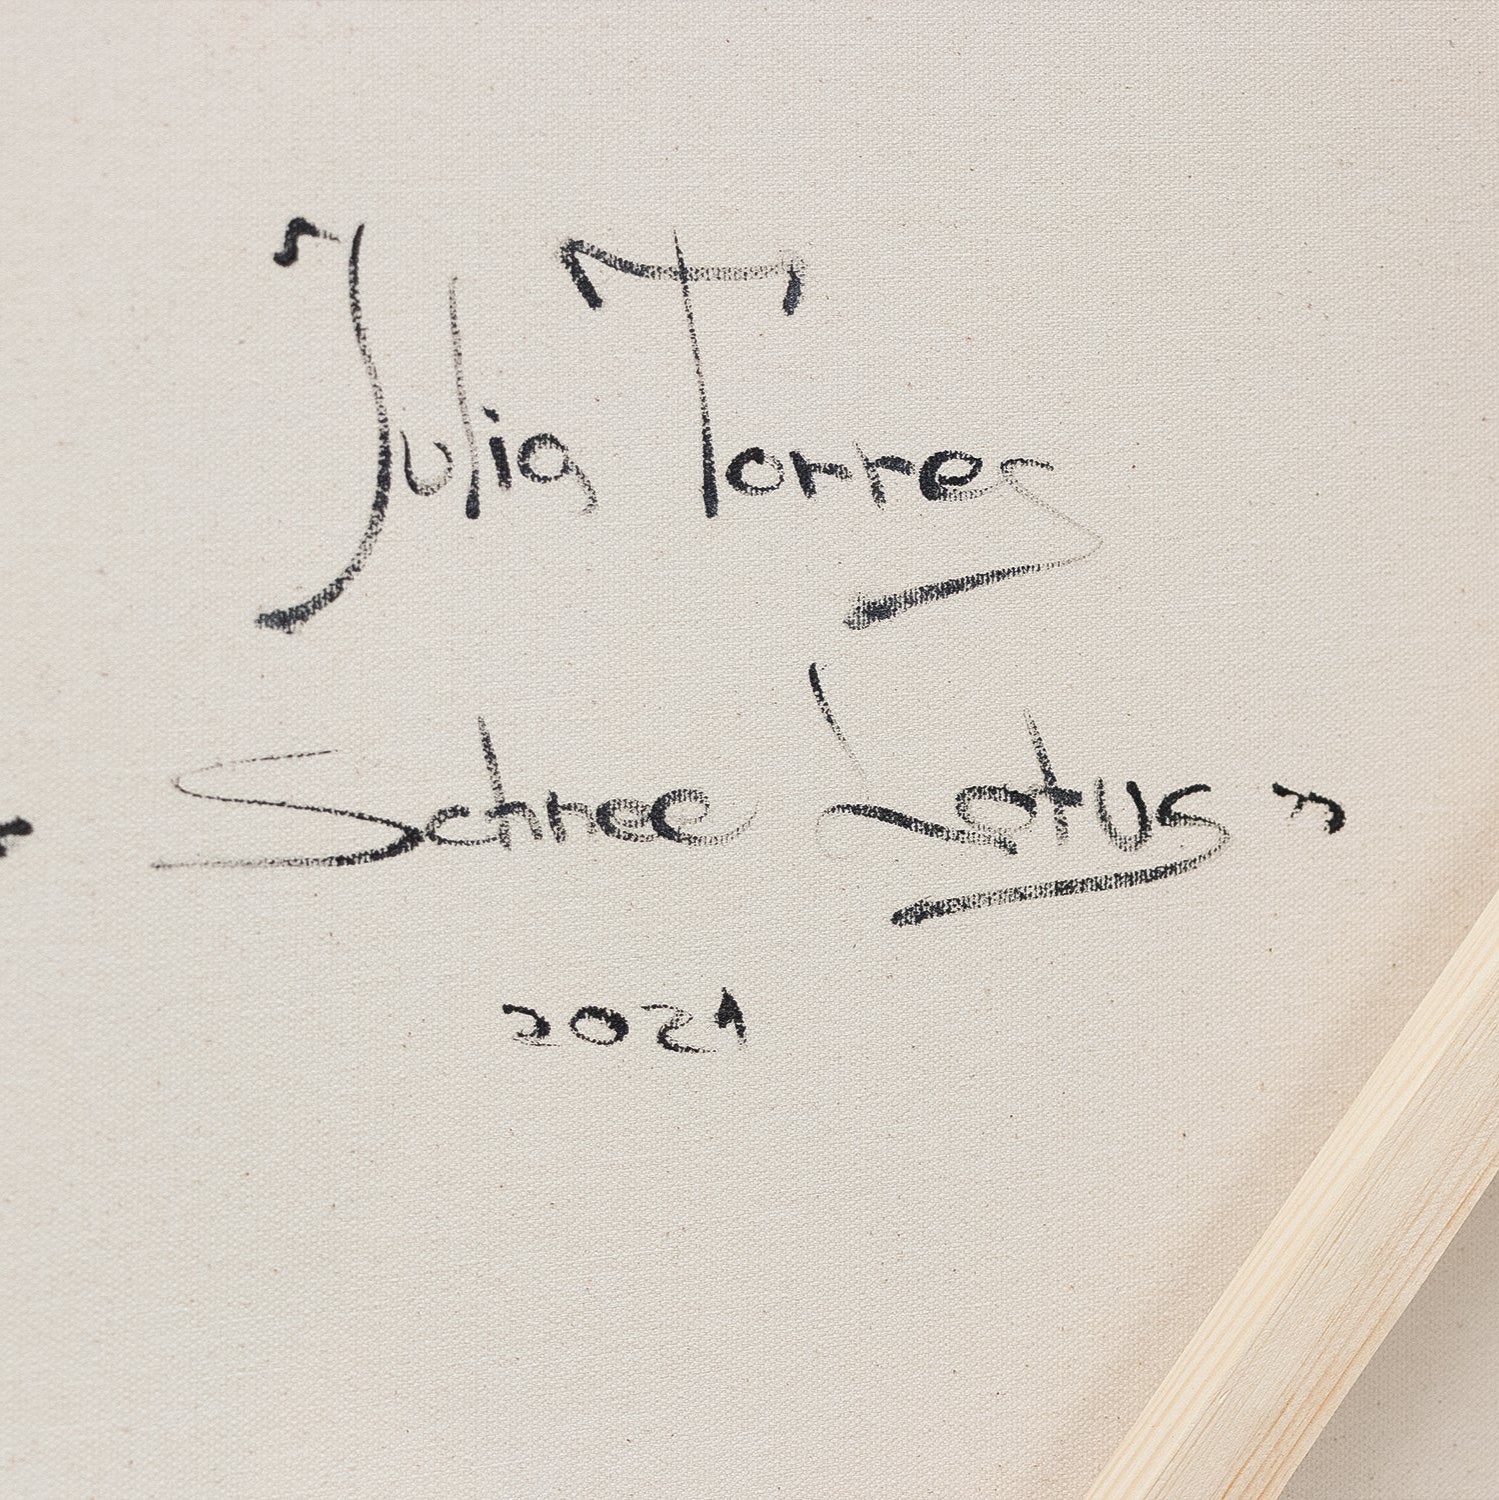 Julia Torres
"Schree Lotus"
2021